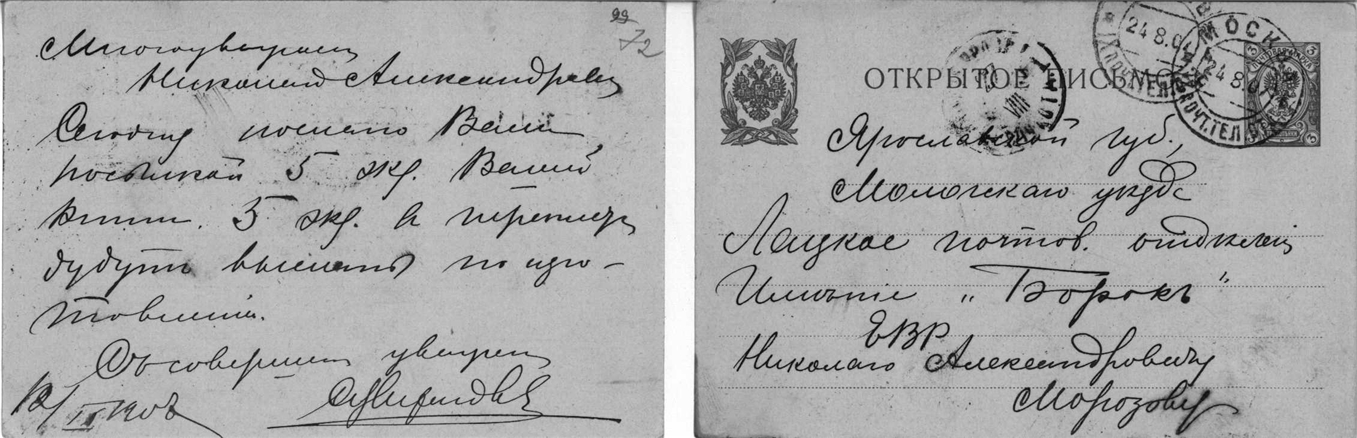 99
72
Многоуважаем
Николай Александрович
Сегодня послано Вами
посылкой 5 экз. Вашей
книги. 5 экз. в переплетѣ
будутъ высланы по изго-
товленіи.
Съ совершен уважен
ОТКРЫТОЕ ПИСЬМО
МОСКВА
24 8.0
Ярославской губ.,
Мологскаго уѣзда
Лацкое почтов. отдѣленіе
Имѣніе „Борокъ"
ЕВР
Николаю Александровичу
Морозову